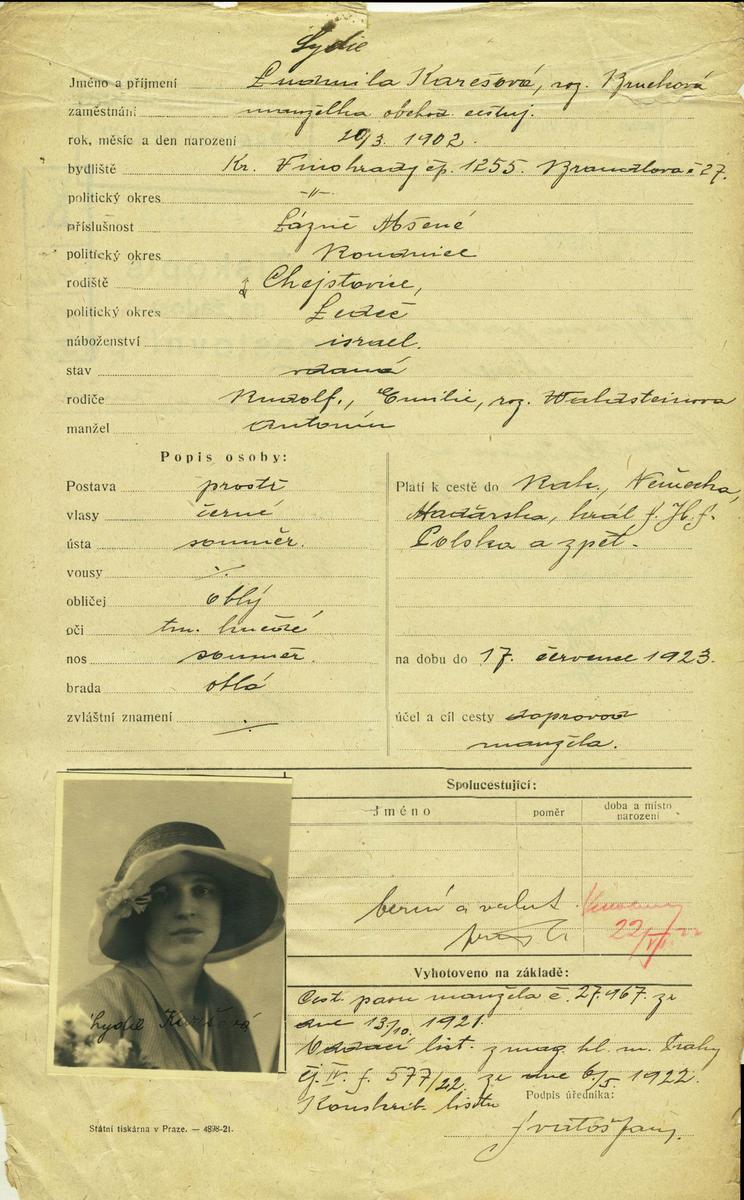 Lydie
Jméno a příjmení Ludmila Karešová, roz. Bruchová
zaměstnání manželka obchod. cestuj.
rok, měsíc a den narození 20/3. 1902.
bydliště Kr. Vinohrady čp. 1255. Brandlova č 27.
politický okres -"-
příslušnost Lázně Mšené
politický okres Roudnice
rodiště Chejstovice,
politický okres Ledeč
náboženství israel.
stav vdaná
rodiče Rudolf., Emilie, roz. Waldsteinova
manžel Antonín
Popis osoby:
Postava prostř
vlasy černé
ústa souměr.
vousy ·/.
obličej oblý
oči tm. hnědé
nos souměr.
brada oblá
zvláštní znamení ·/.
Platí k cestě do Rak., Německa,
Maďarska, král
Polska a zpět.
na dobu do 17. července 1923.
účel a cíl cesty doprovod
manžela.
Spolucestující:
Jméno poměr doba a místo
narození
berní a valut.
22/VII 22
Vyhotoveno na základě:
Cest. pasu manžela č. 27.967 ze
dne 13/10. 1921.
Oddací list. z mag. hl. m. Prahy
čj. IV. f. 577/22. ze dne 6/5 1922.
Konskrib. listu
Podpis úředníka:
Lydie Karešová
Státní tiskárna v Praze. — 4898-21.